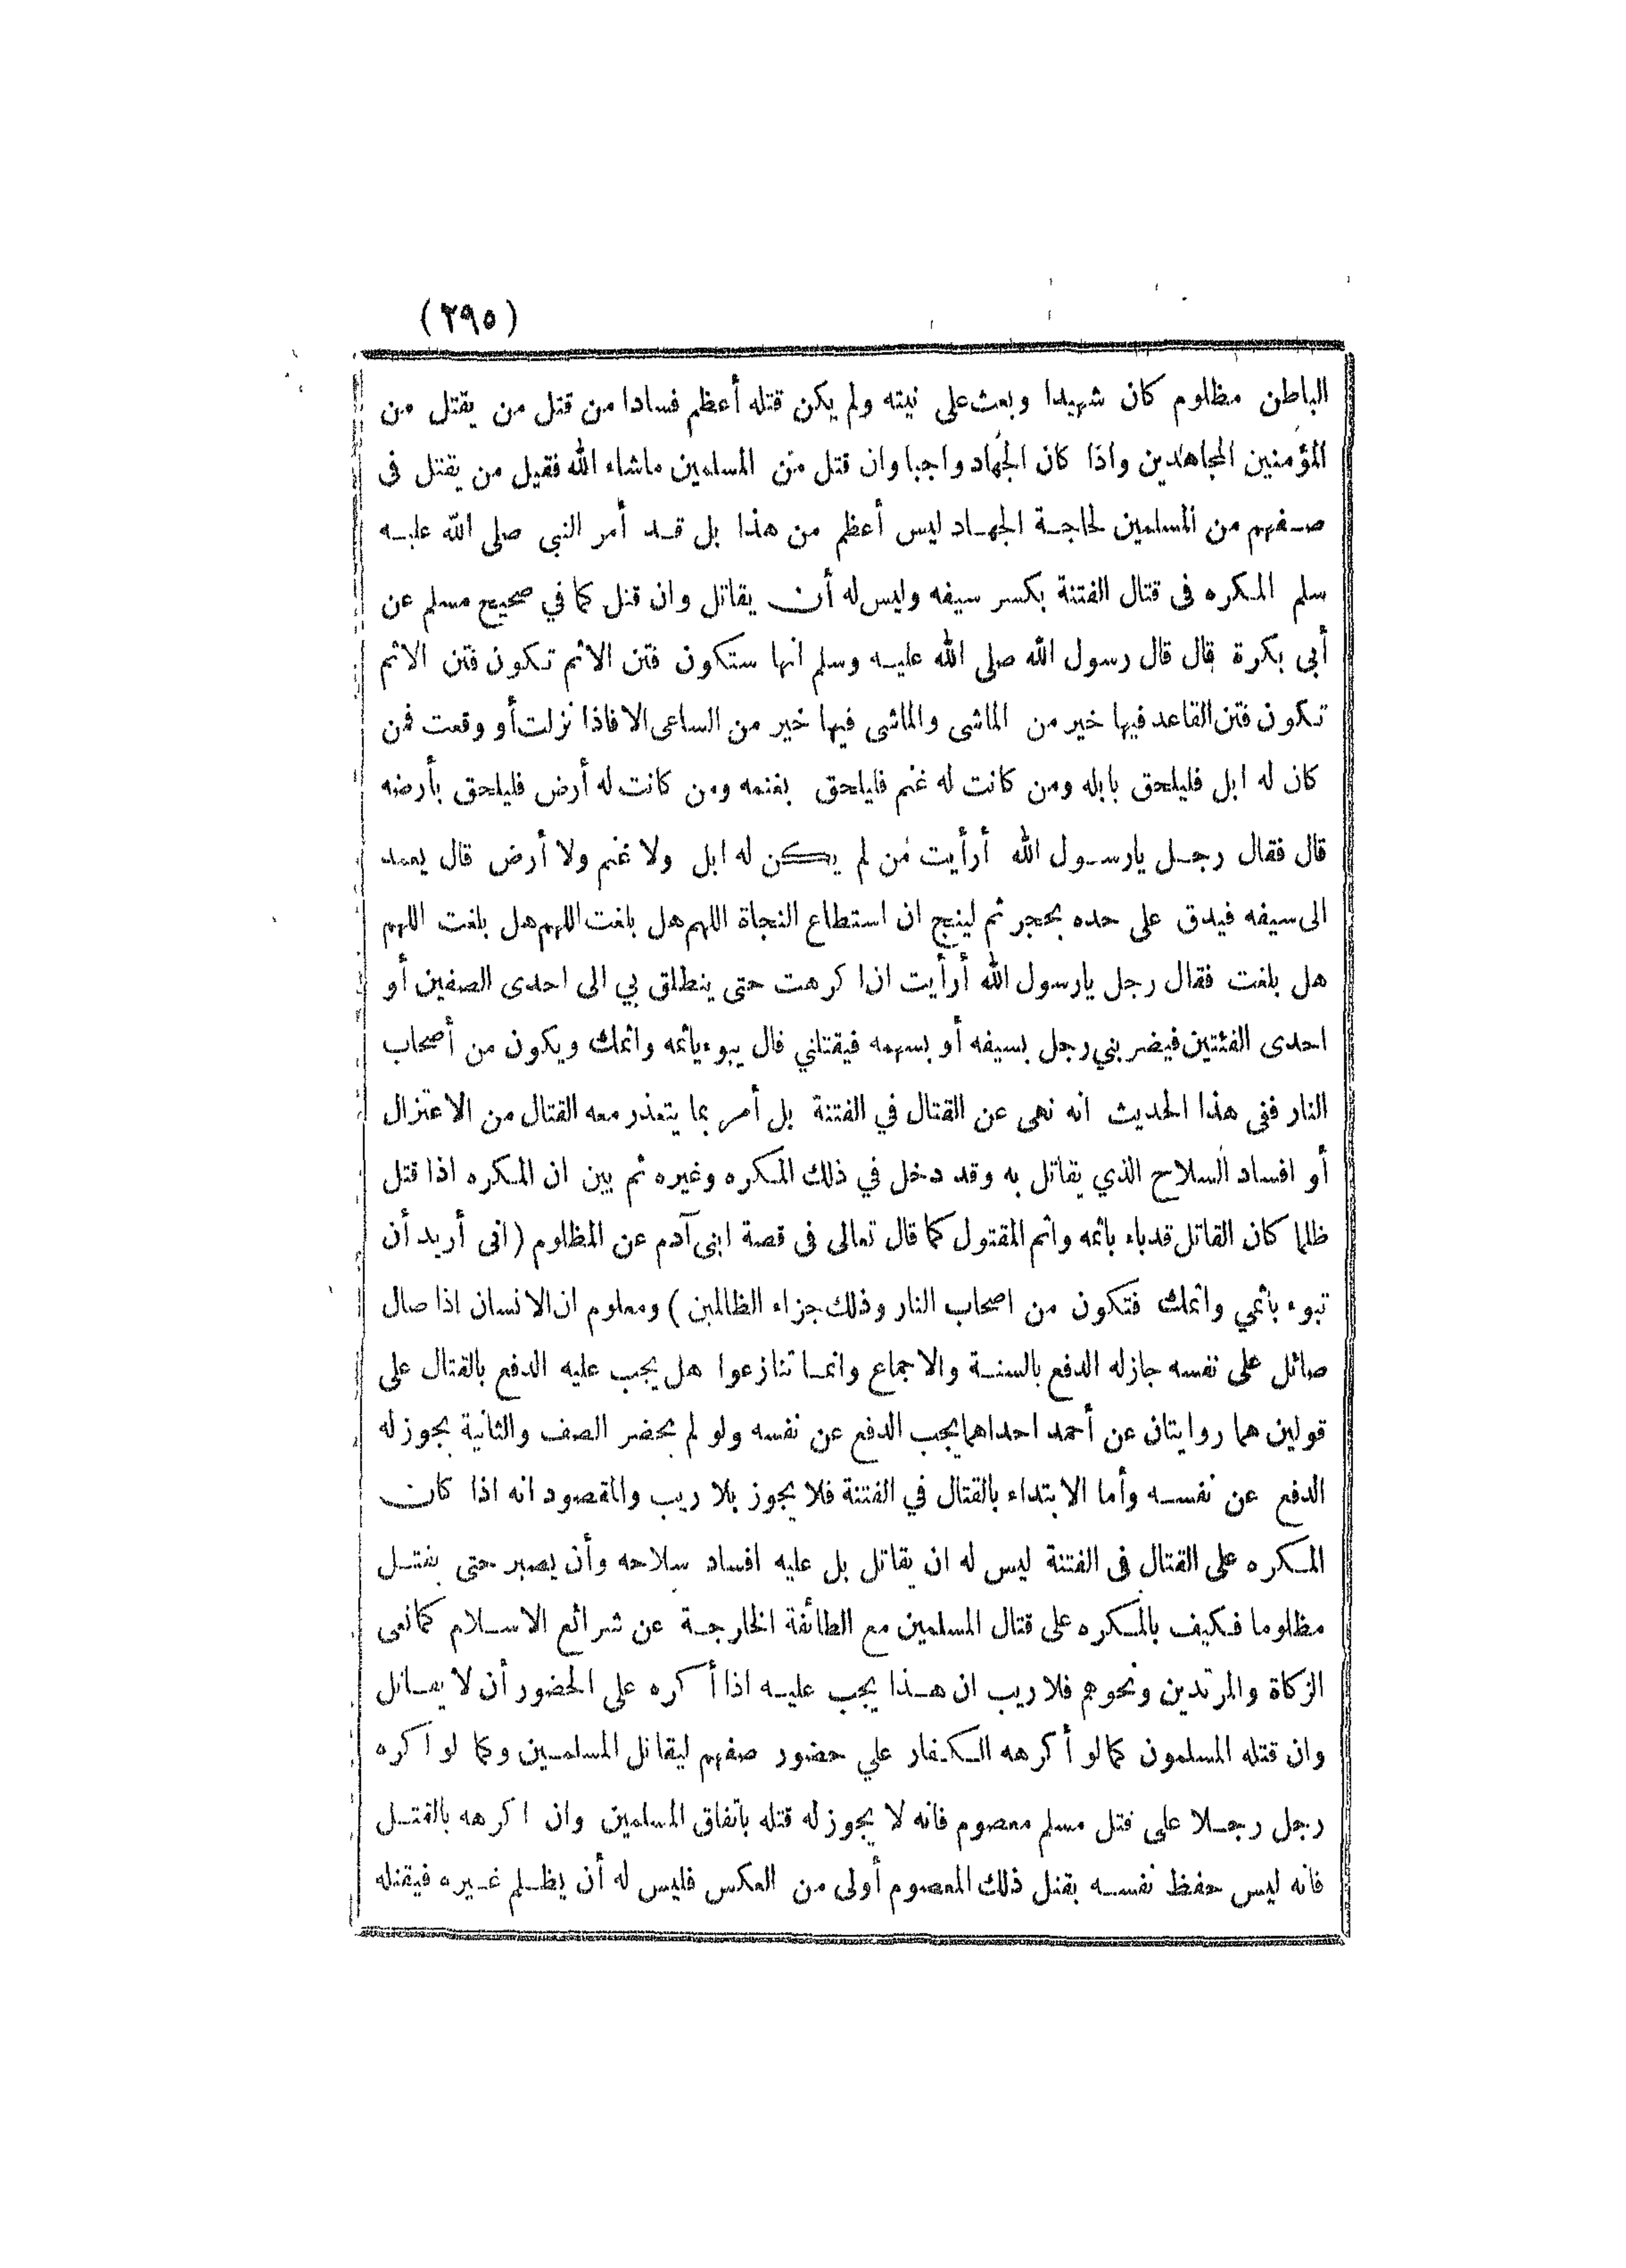 (٢٩٥)
الباطن مظلوم كان شهيدا وبعث على نيته ولم يكن قتله أعظم فسادا من قتل من يقتل من
المؤمنين المجاهدين واذا كان الجهاد واجبا وان قتل من المسلمين ماشاء الله فقيل من يقتل فى
صفهم من المسلمين لحاجة الجهاد ليس أعظم من هذا بل قد أمر النبى صلى الله عليه
سلم المكره فى قتال الفتنة بكسر سيفه وليس له أن يقاتل وان قتل كما في صحيح مسلم عن
أبى بكرة قال قال رسول الله صلى الله عليه وسلم انها ستكون فتن الاثم تكون فتن الاثم
تكون فتن القاعد فيها خير من الماشى والماشى فيها خير من الساعى الا فاذا نزلت أو وقعت فمن
كان له ابل فليلحق بابله ومن كانت له غنم فليلحق بغنمه ومن كانت له أرض فليلحق بأرضه
قال فقال رجل يارسول الله أرأيت من لم يكن له ابل ولا غنم ولا أرض قال يعمد
الى سيفه فيدق على حده بحجر ثم لينج ان استطاع النجاة اللهم هل بلغت اللهم هل بلغت اللهم
هل بلغت فقال رجل يارسول الله أرأيت اذا كرهت حتى ينطلق بي الى احدى الصفين أو
احدى الفئتين فيضربني رجل بسيفه أو بسهمه فيقتلني قال يبوء باثمه واثمك ويكون من أصحاب
النار ففى هذا الحديث انه نهى عن القتال في الفتنة بل أمر بما يتعذر معه القتال من الاعتزال
أو افساد السلاح الذي يقاتل به وقد دخل في ذلك المكره وغيره ثم بين ان المكره اذا قتل
ظلما كان القاتل قد باء باثمه واثم المقتول كما قال تعالى فى قصة ابنى آدم عن المظلوم (انى أريد أن
تبوء باثمي واثمك فتكون من اصحاب النار وذلك جزاء الظالمين) ومعلوم ان الانسان اذا صال
صائل على نفسه جاز له الدفع بالسنة والاجماع وانما تنازعوا هل يجب عليه الدفع بالقتال على
قولين هما روايتان عن أحمد احداهما يجب الدفع عن نفسه ولو لم يحضر الصف والثانية يجوز له
الدفع عن نفسه وأما الابتداء بالقتال في الفتنة فلا يجوز بلا ريب والمقصود انه اذا كان
المكره على القتال فى الفتنة ليس له ان يقاتل بل عليه افساد سلاحه وأن يصبر حتى يقتل
مظلوما فكيف بالمكره على قتال المسلمين مع الطائفة الخارجة عن شرائع الاسلام كمانعى
الزكاة والمرتدين ونحوهم فلا ريب ان هذا يجب عليه اذا أكره على الحضور أن لا يقاتل
وان قتله المسلمون كما لو أكرهه الكفار علي حضور صفهم ليقاتل المسلمين وكما لو اكره
رجل رجلا على قتل مسلم معصوم فانه لا يجوز له قتله باتفاق المسلمين وان اكرهه بالقتل
فانه ليس حفظ نفسه بقتل ذلك المعصوم أولى من العكس فليس له أن يظلم غيره فيقتله